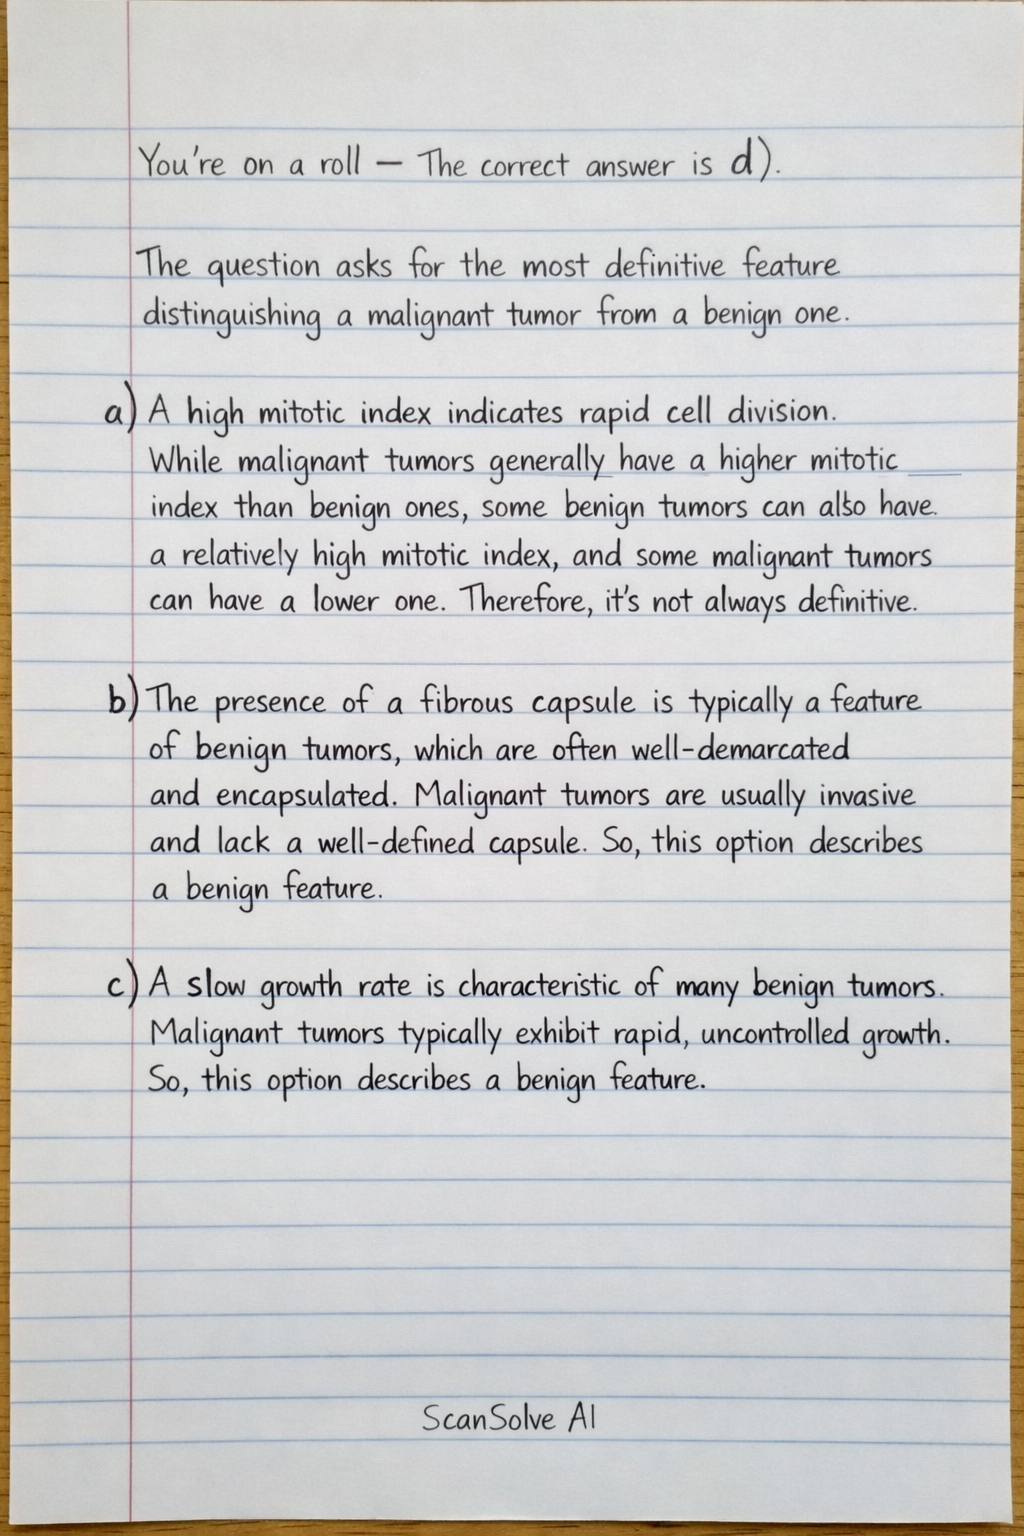 You're on a roll — The correct answer is d).
The question asks for the most definitive feature
distinguishing a malignant tumor from a benign one.
a) A high mitotic index indicates rapid cell division.
While malignant tumors generally have a higher mitotic
index than benign ones, some benign tumors can also have.
a relatively high mitotic index, and some malignant tumors
can have a lower one. Therefore, it's not always definitive.
b) The presence of a fibrous capsule is typically a feature
of benign tumors, which are often well-demarcated
and encapsulated. Malignant tumors are usually invasive
and lack a well-defined capsule. So, this option describes
a benign feature.
c) A slow growth rate is characteristic of many benign tumors.
Malignant tumors typically exhibit rapid, uncontrolled growth.
So, this option describes a benign feature.
ScanSolve AI